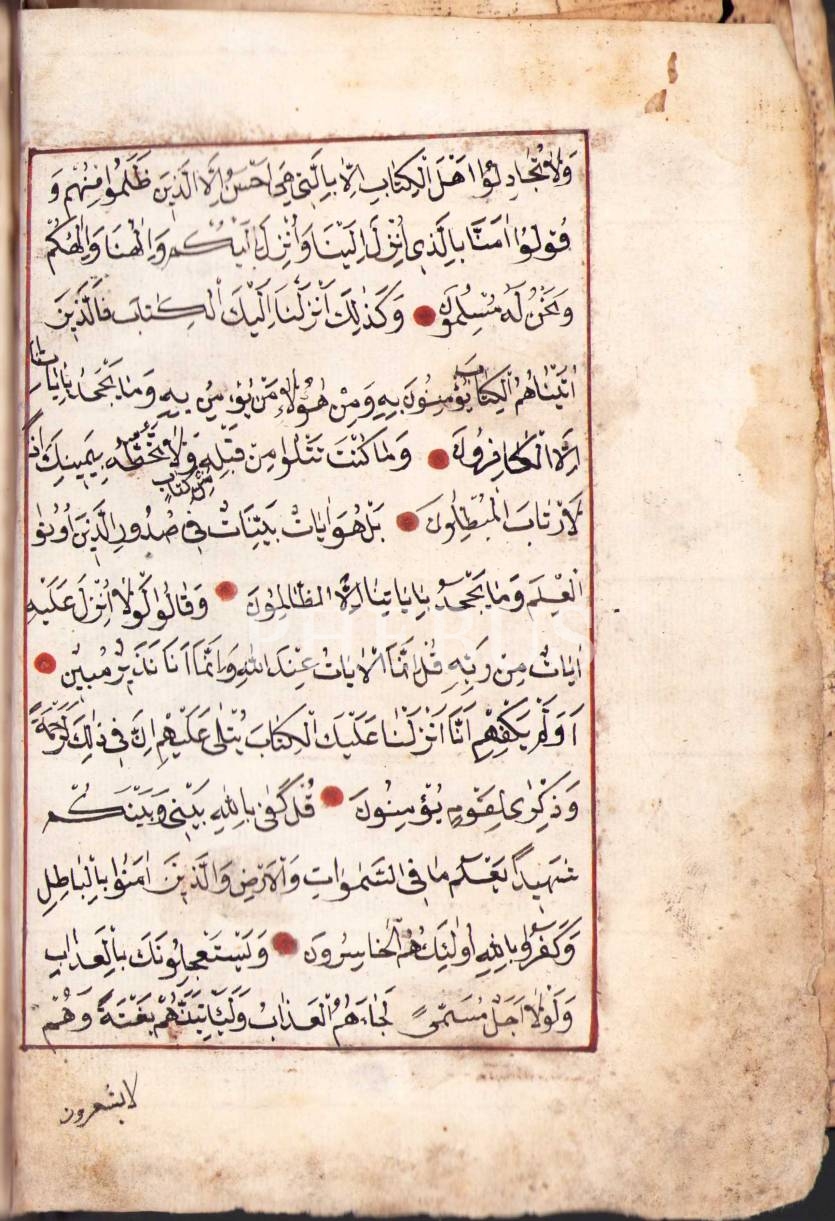 وَلَا تُجَادِلُوا اَهْلَ الْكِتَابِ اِلَّا بِالَّتِي هِيَ اَحْسَنُ اِلَّا الَّذِينَ ظَلَمُوا مِنْهُمْ وَ
قُولُوا اٰمَنَّا بِالَّذِي اُنْزِلَ اِلَيْنَا وَاُنْزِلَ اِلَيْكُمْ وَاِلٰهُنَا وَاِلٰهُكُمْ
وَنَحْنُ لَهُ مُسْلِمُونَ وَكَذٰلِكَ اَنْزَلْنَا اِلَيْكَ الْكِتَابَ فَالَّذِينَ
اٰتَيْنَاهُمُ الْكِتَابَ يُؤْمِنُونَ بِهِ وَمِنْ هٰؤُلَاءِ مَنْ يُؤْمِنُ بِهِ وَمَا يَجْحَدُ بِاٰيَاتِنَا
اِلَّا الْكَافِرُونَ وَمَا كُنْتَ تَتْلُوا مِنْ قَبْلِهِ مِنْ كِتَابٍ وَلَا تَخُطُّهُ بِيَمِينِكَ اِذًا
لَارْتَابَ الْمُبْطِلُونَ بَلْ هُوَ اٰيَاتٌ بَيِّنَاتٌ فِي صُدُورِ الَّذِينَ اُوتُوا
الْعِلْمَ وَمَا يَجْحَدُ بِاٰيَاتِنَا اِلَّا الظَّالِمُونَ وَقَالُوا لَوْلَا اُنْزِلَ عَلَيْهِ
اٰيَاتٌ مِنْ رَبِّهِ قُلْ اِنَّمَا الْاٰيَاتُ عِنْدَ اللّٰهِ وَاِنَّمَا اَنَا نَذِيرٌ مُبِينٌ
اَوَلَمْ يَكْفِهِمْ اَنَّا اَنْزَلْنَا عَلَيْكَ الْكِتَابَ يُتْلٰى عَلَيْهِمْ اِنَّ فِي ذٰلِكَ لَرَحْمَةً
وَذِكْرٰى لِقَوْمٍ يُؤْمِنُونَ قُلْ كَفٰى بِاللّٰهِ بَيْنِي وَبَيْنَكُمْ
شَهِيدًا يَعْلَمُ مَا فِي السَّمٰوَاتِ وَالْاَرْضِ وَالَّذِينَ اٰمَنُوا بِالْبَاطِلِ
وَكَفَرُوا بِاللّٰهِ اُولٰئِكَ هُمُ الْخَاسِرُونَ وَيَسْتَعْجِلُونَكَ بِالْعَذَابِ
وَلَوْلَا اَجَلٌ مُسَمًّى لَجَاءَهُمُ الْعَذَابُ وَلَيَأْتِيَنَّهُمْ بَغْتَةً وَهُمْ
لا يشعرون